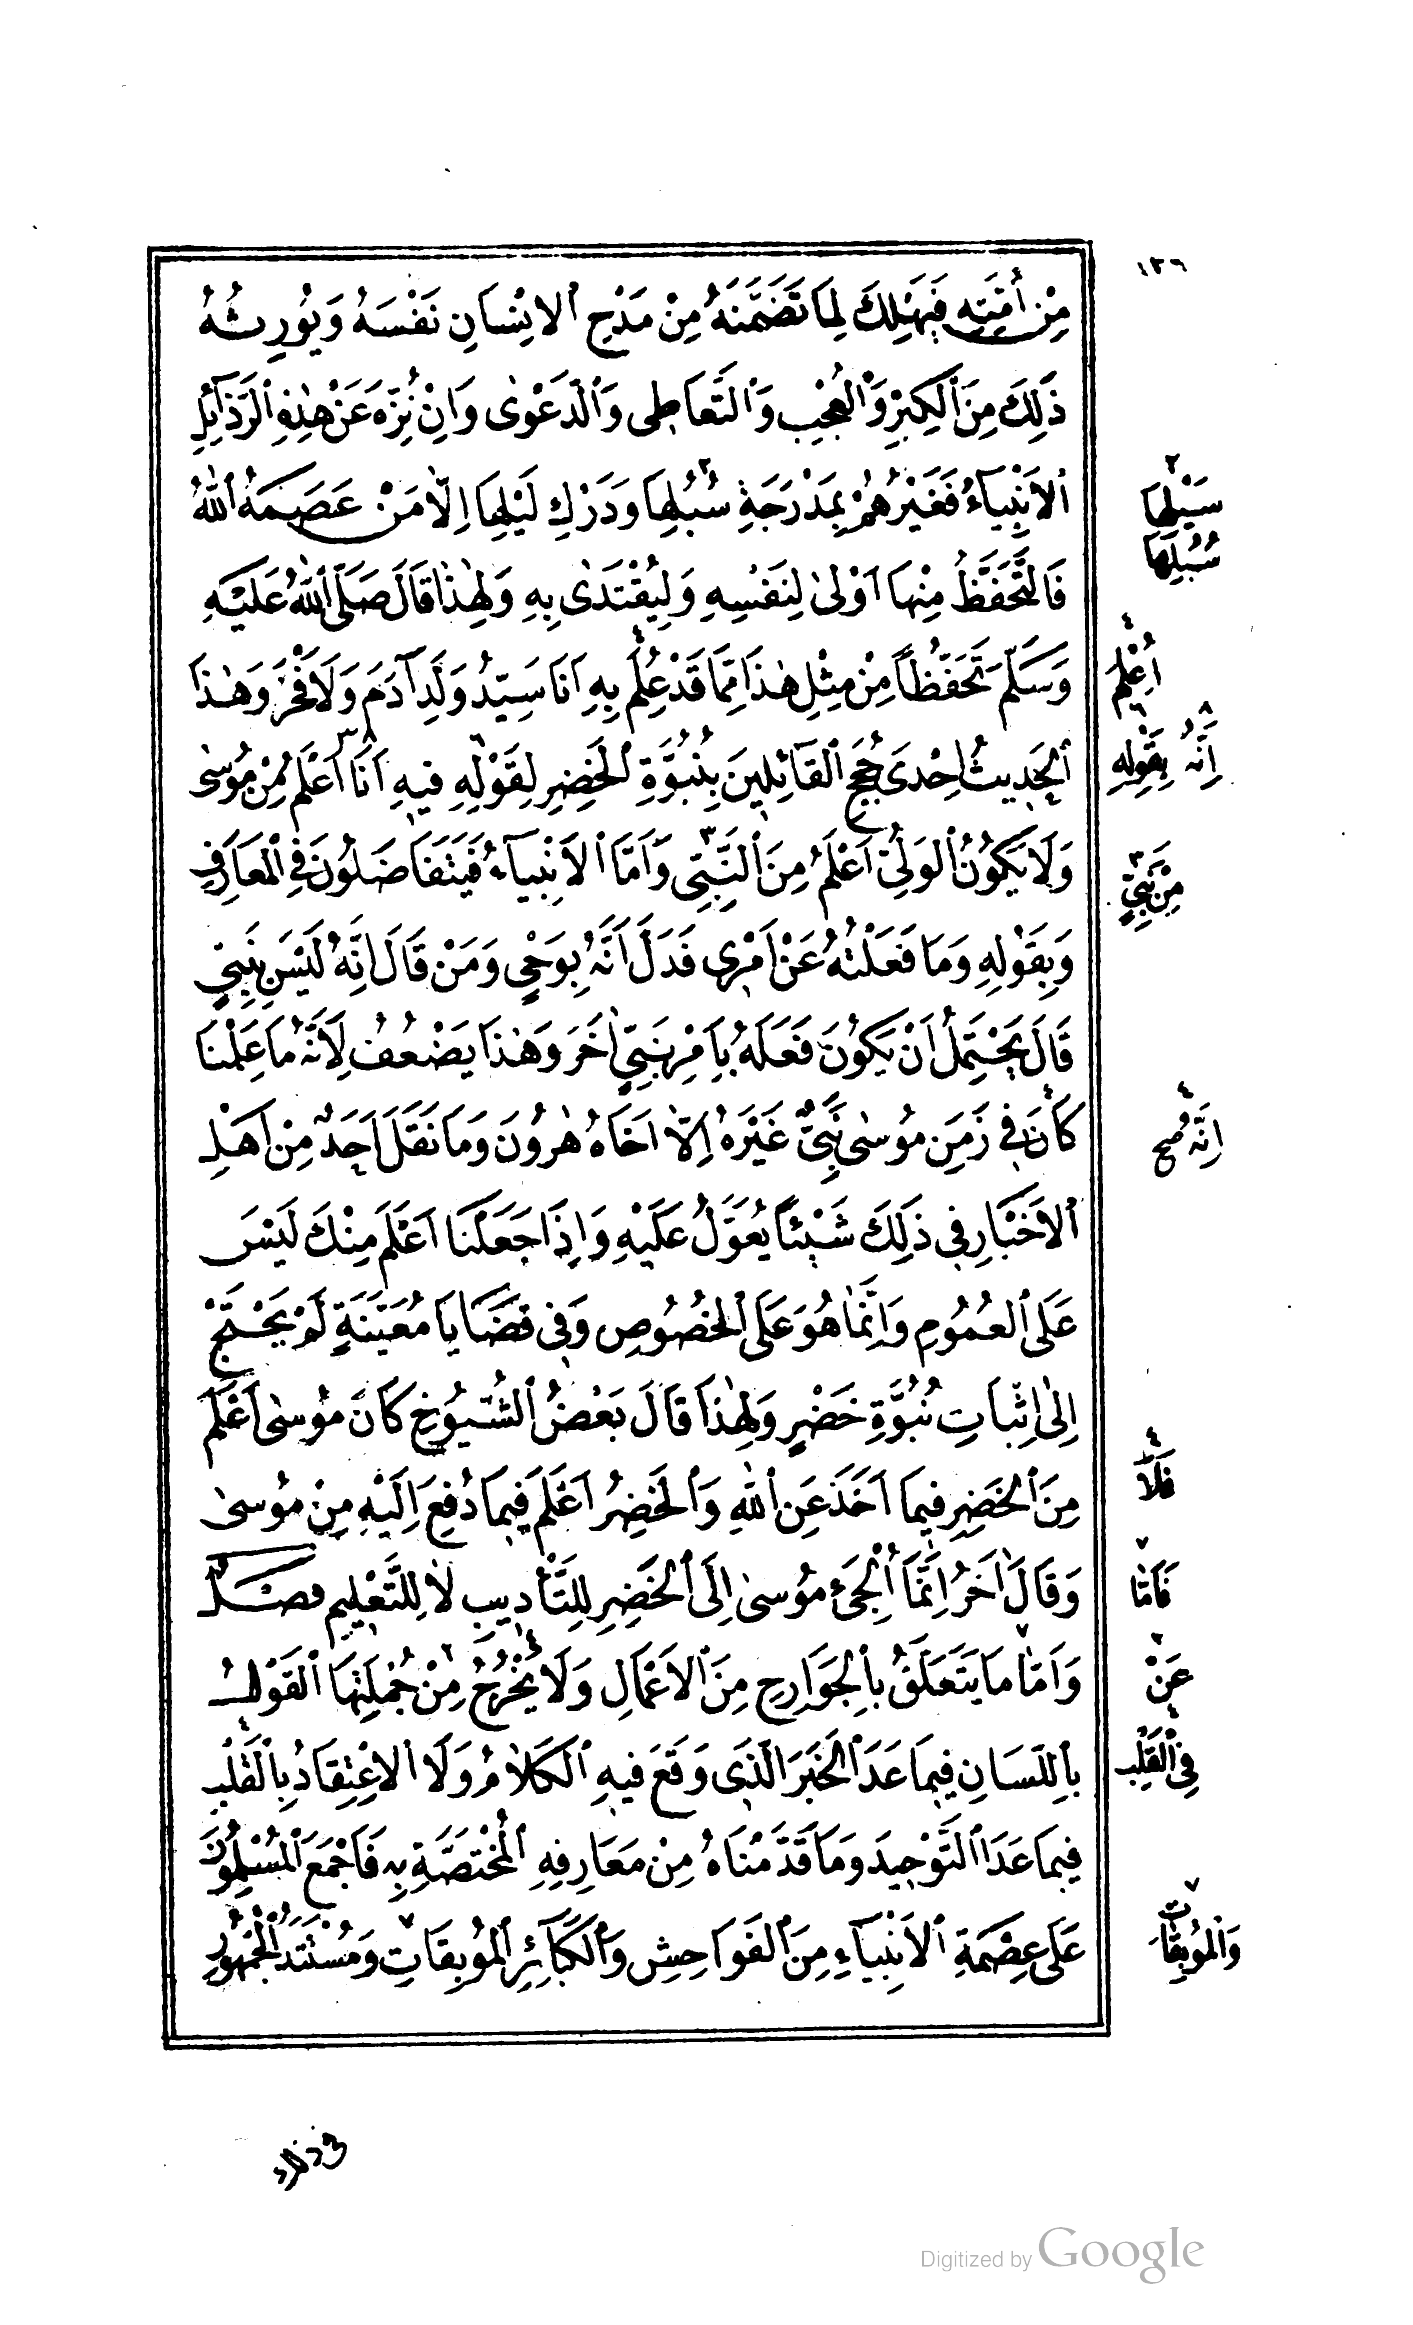 ١٢٦
مِنْ أُمَّتِهِ فَيَهْلِكَ لِمَا تَضَمَّنَهُ مِنْ مَدْحِ ٱلْاِنْسَانِ نَفْسَهُ وَيُورِثُهُ
ذٰلِكَ مِنَ ٱلْكِبْرِ وَٱلْعُجْبِ وَٱلتَّعَاطِى وَٱلدَّعْوٰى وَاِنْ نُزِّهَ عَنْ هٰذِهِ ٱلرَّذَآئِلِ
ٱلْاَنْبِيَآءُ فَغَيْرُهُمْ بِمَدْرَجَةِ سُبُلِهَا وَدَرْكِ لَيْلِهَا اِلَّا مَنْ عَصَمَهُ ٱللّٰهُ
فَالتَّحَفُّظُ مِنْهَا اَوْلٰى لِنَفْسِهِ وَلِيُقْتَدٰى بِهِ وَلِهٰذَا قَالَ صَلَّى ٱللّٰهُ عَلَيْهِ
وَسَلَّمَ تَحَفُّظًا مِنْ مِثْلِ هٰذَا مِمَّا قَدْ عُلِمَ بِهِ اَنَا سَيِّدُ وَلَدِ آدَمَ وَلَا فَخْرَ وَهٰذَا
ٱلْحَدِيثُ اِحْدَى حُجَجِ ٱلْقَآئِلِينَ بِنُبُوَّةِ ٱلْخَضِرِ لِقَوْلِهِ فِيهِ اَنَا اَعْلَمُ مِنْ مُوسٰى
وَلَا يَكُونُ ٱلْوَلِىُّ اَعْلَمَ مِنَ ٱلنَّبِىِّ وَاَمَّا ٱلْاَنْبِيَآءُ فَيَتَفَاضَلُونَ فِى ٱلْمَعَارِفِ
وَبِقَوْلِهِ وَمَا فَعَلْتُهُ عَنْ اَمْرِى فَدَلَّ اَنَّهُ بِوَحْىٍ وَمَنْ قَالَ اِنَّهُ لَيْسَ بِنَبِىٍّ
قَالَ يَحْتَمِلُ اَنْ يَكُونَ فَعَلَهُ بِاَمْرِ نَبِىٍّ اٰخَرَ وَهٰذَا يَضْعُفُ لِاَنَّهُ مَا عَلِمْنَا
كَانَ فِى زَمَنِ مُوسٰى نَبِىٌّ غَيْرَهُ اِلَّا اَخَاهُ هٰرُونَ وَمَا نَقَلَ اَحَدٌ مِنْ اَهْلِ
ٱلْاَخْبَارِ فِى ذٰلِكَ شَيْئًا يُعَوَّلُ عَلَيْهِ وَاِذَا جَعَلْنَا اَعْلَمَ مِنْكَ لَيْسَ
عَلَى ٱلْعُمُومِ وَاِنَّمَا هُوَ عَلَى ٱلْخُصُوصِ وَفِى قَضَايَا مُعَيَّنَةٍ لَمْ يَحْتَجْ
اِلٰى اِثْبَاتِ نُبُوَّةِ خَضِرٍ وَلِهٰذَا قَالَ بَعْضُ ٱلشُّيُوخِ كَانَ مُوسٰى اَعْلَمَ
مِنَ ٱلْخَضِرِ فِيمَا اَخَذَ عَنِ ٱللّٰهِ وَٱلْخَضِرُ اَعْلَمُ فِيمَا دُفِعَ اِلَيْهِ مِنْ مُوسٰى
وَقَالَ اٰخَرُ اِنَّمَا اُلْجِئَ مُوسٰى اِلَى ٱلْخَضِرِ لِلتَّأْدِيبِ لَا لِلتَّعْلِيمِ فَصْلٌ
وَاَمَّا مَا يَتَعَلَّقُ بِٱلْجَوَارِحِ مِنَ ٱلْاَعْمَالِ وَلَا يَخْرُجُ مِنْ جُمْلَتِهَا ٱلْقَوْلُ
بِٱللِّسَانِ فِيمَا عَدَا ٱلْخَبَرَ ٱلَّذِى وَقَعَ فِيهِ ٱلْكَلَامُ وَلَا ٱلْاِعْتِقَادُ بِالْقَلْبِ
فِيمَا عَدَا ٱلتَّوْحِيدَ وَمَا قَدَّمْنَاهُ مِنْ مَعَارِفِهِ ٱلْمُخْتَصَّةِ بِهِ فَاَجْمَعَ ٱلْمُسْلِمُونَ
عَلَى عِصْمَةِ ٱلْاَنْبِيَآءِ مِنَ ٱلْفَوَاحِشِ وَٱلْكَبَآئِرِ ٱلْمُوبِقَاتِ وَمُسْتَنَدُ ٱلْجُمْهُورِ
٢
سَيْلِهَا
سُبُلِهَا
٤
اُعْلِمَ
٦ ٨
بِقَوْلِهِ اَنَّهُ
٣
مِنْ نَبِىٍّ
٤
اَنَّهُ صح
٤
فَلَا
٧
فَاَمَّا
٢
عَنْ
٤
فِى ٱلْقَلْبِ
٧
وَٱلْمُوبِقَاتِ
Digitized by Google